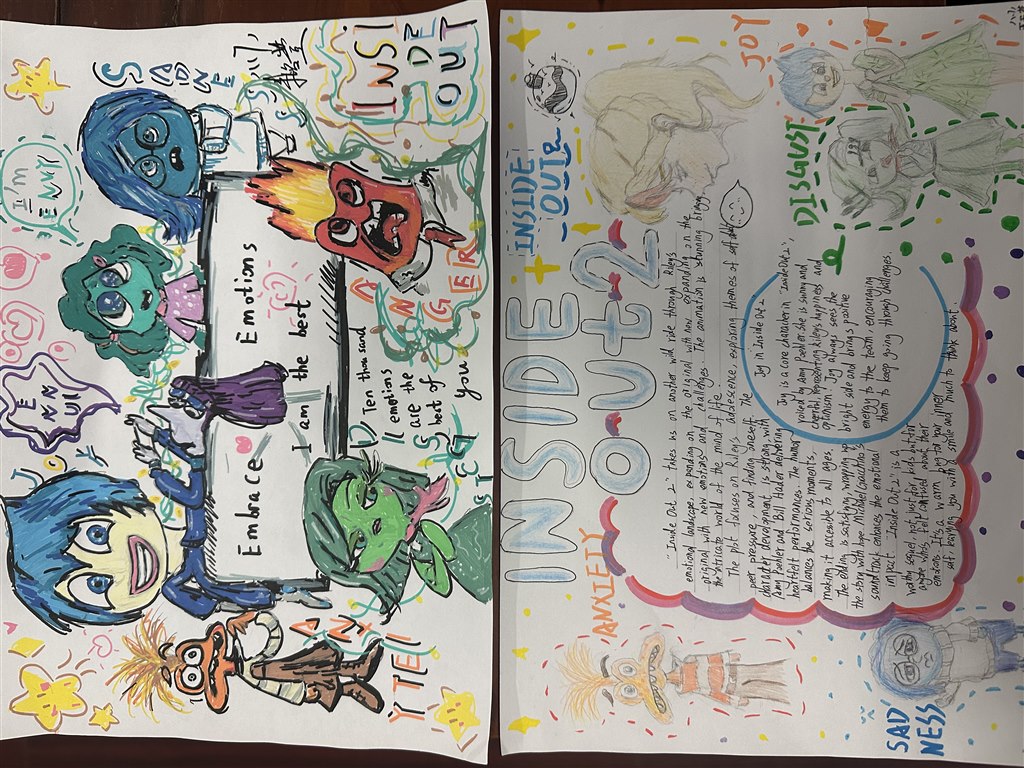 SADNE
SS
INSI
DE
OUT
I'm
ENVY
ANGER
E
NN
UI
JOY
Embrace Emotions
I am the best
Ten thansand
emotions
are the
best of
you
DISGUST
ANXI
YTEI
INSIDE
OUT2
JOY
INSIDE
OUT2
DISGUST
ANXIETY
SAD
NESS
"Inside Out 2" takes us on another wild ride though Riley's
emotional landscape, expanding on the original with new expanding on the
original with new emotions and challenges. The animation is stunning bring
the intricate world of the mind of life.
The plot focuses on Riley's adolescence, exploring themes of self
peer pressure, and finding oneself. The
character development is strong, with
Amy Poehler and Bill Hader delivering
heartfelt performances. The humor
balances the serious moments,
making it accessible to all ages.
The ending is satisfying, wrapping up
the story with hope. Michael Giacchino's
soundtrack enhances the emotional
impact. "Inside Out 2" is a
worthy sequel, not just for kids but for
anyone who's ever felt confused about their
emotions. It's a warm hug to your inner
self, leaving you with a smile and much to think about.
Joy in Inside Out 2
Joy is a core character in "Inside Out",
voiced by Amy Poehler. she is sunny and
cheerful, representing Riley's happiness and
optimism. Joy always sees the
bright side and brings positive
energy to the team, encouraging
them to keep going through challenges.